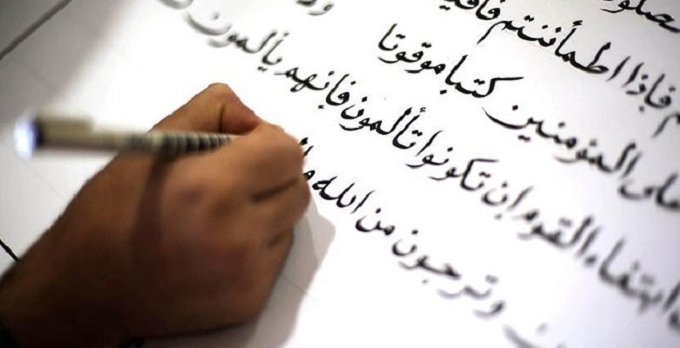 فاذا اطمأننتم
على المؤمنين كتبا موقوتا
ابتغاء القوم ان تكونوا تألمون فانهم يألمون
وترجون من الله